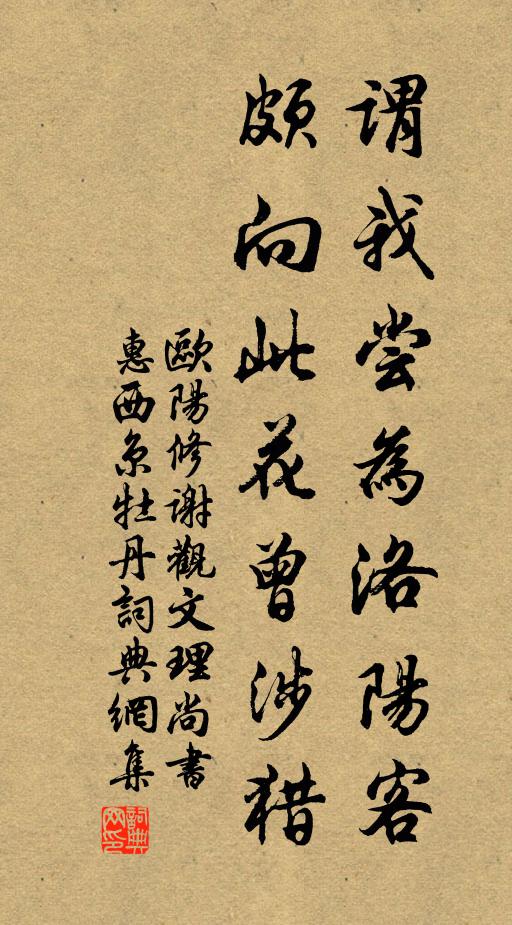 謂我尝為洛陽客
頗向此花曾涉猎
歐陽修謝觀文理尚書
惠西京牡丹詞典網集
詞典
网印